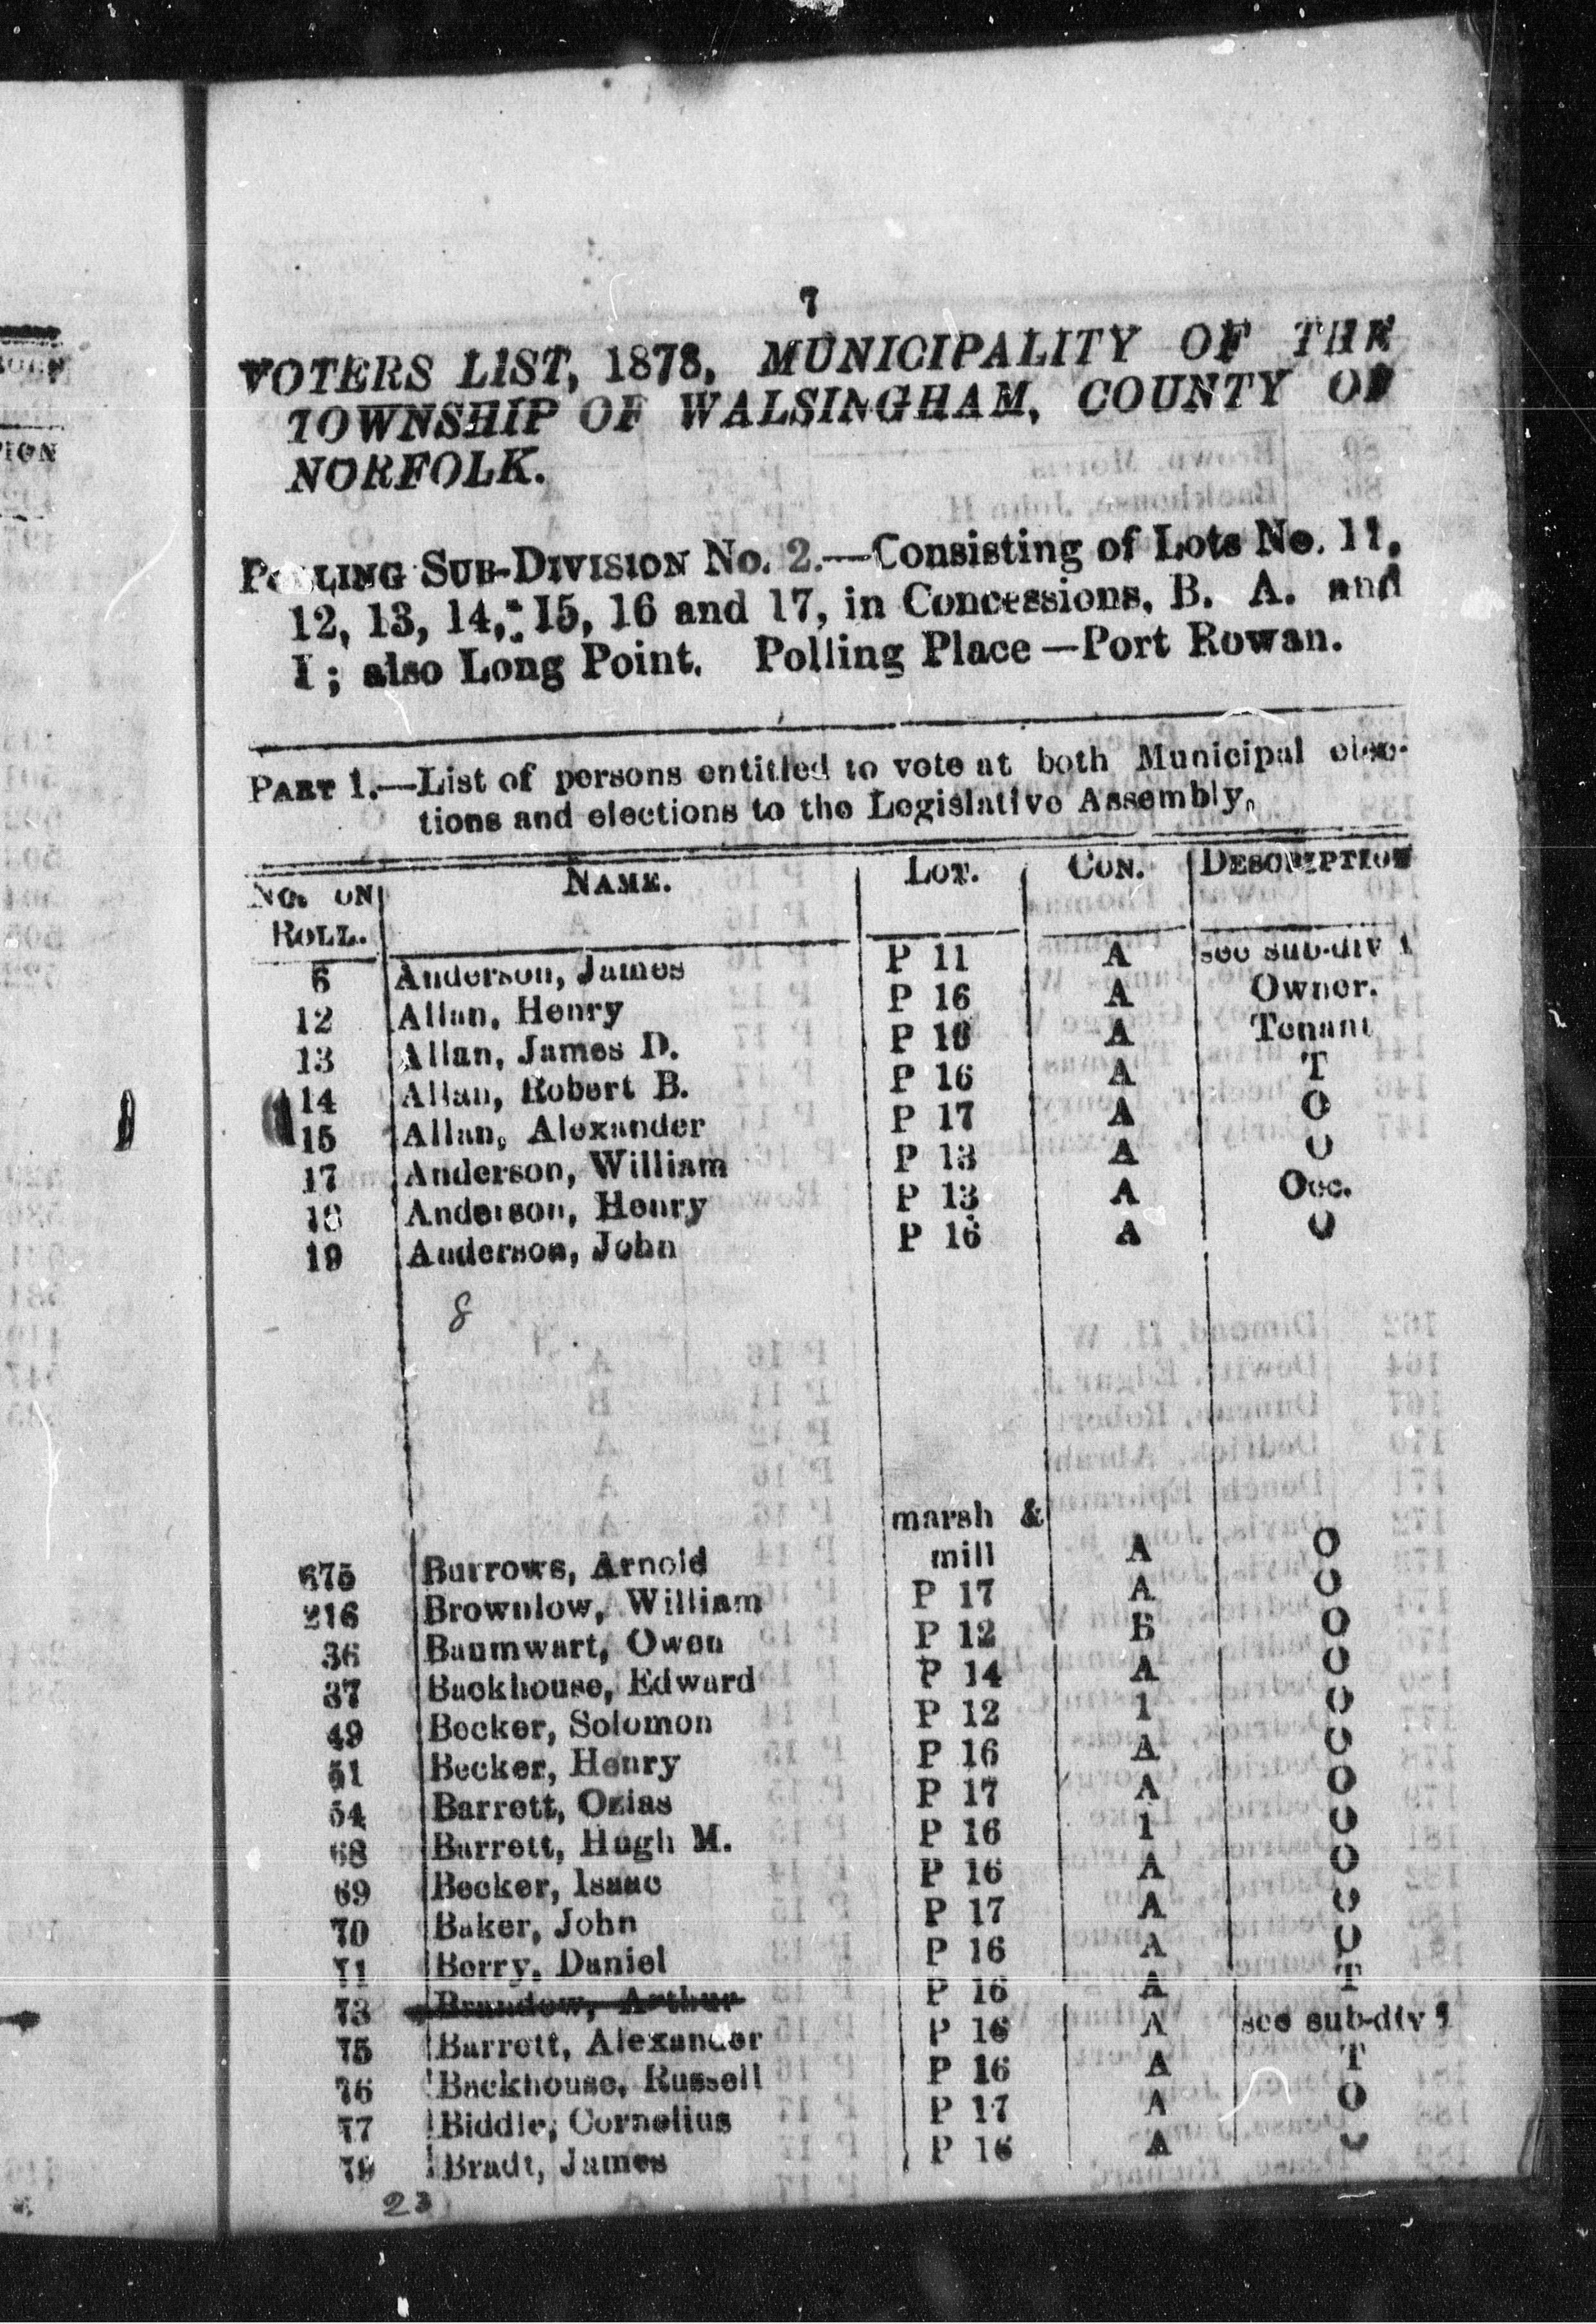 7
VOTERS LIST, 1878, MUNICIPALITY OF THE
TOWNSHIP OF WALSINGHAM, COUNTY OF
NORFOLK.
POLLING SUB-DIVISION No. 2.—Consisting of Lots No. 11,
12, 13, 14, 15, 16 and 17, in Concessions, B. A. and
I; also Long Point. Polling Place—Port Rowan.
PART 1.—List of persons entitled to vote at both Municipal elec-
tions and elections to the Legislative Assembly,
NO. ON ROLL. NAME. LOT. CON. DESCRIPTION
6 Anderson, James P 11 A see sub-div 1
12 Allan, Henry P 16 A Owner.
13 Allan, James D. P 16 A Tenant
14 Allan, Robert B. P 16 A T
15 Allan, Alexander P 17 A O
17 Anderson, William P 13 A O
18 Anderson, Henry P 13 A Occ.
19 Anderson, John P 16 A O
8
marsh &
675 Burrows, Arnold mill A O
216 Brownlow, William P 17 A O
36 Baumwart, Owen P 12 B O
37 Backhouse, Edward P 14 A O
49 Becker, Solomon P 12 1 O
51 Becker, Henry P 16 A O
54 Barrett, Ozias P 17 A O
68 Barrett, Hugh M. P 16 1 O
69 Becker, Isaac P 16 A O
70 Baker, John P 17 A O
71 Berry, Daniel P 16 A O
73 Brandow, Arthur P 16 A T
75 Barrett, Alexander P 16 A see sub-div
76 Backhouse, Russell P 16 A T
77 Biddle, Cornelius P 17 A O
79 Bradt, James P 16 A
23